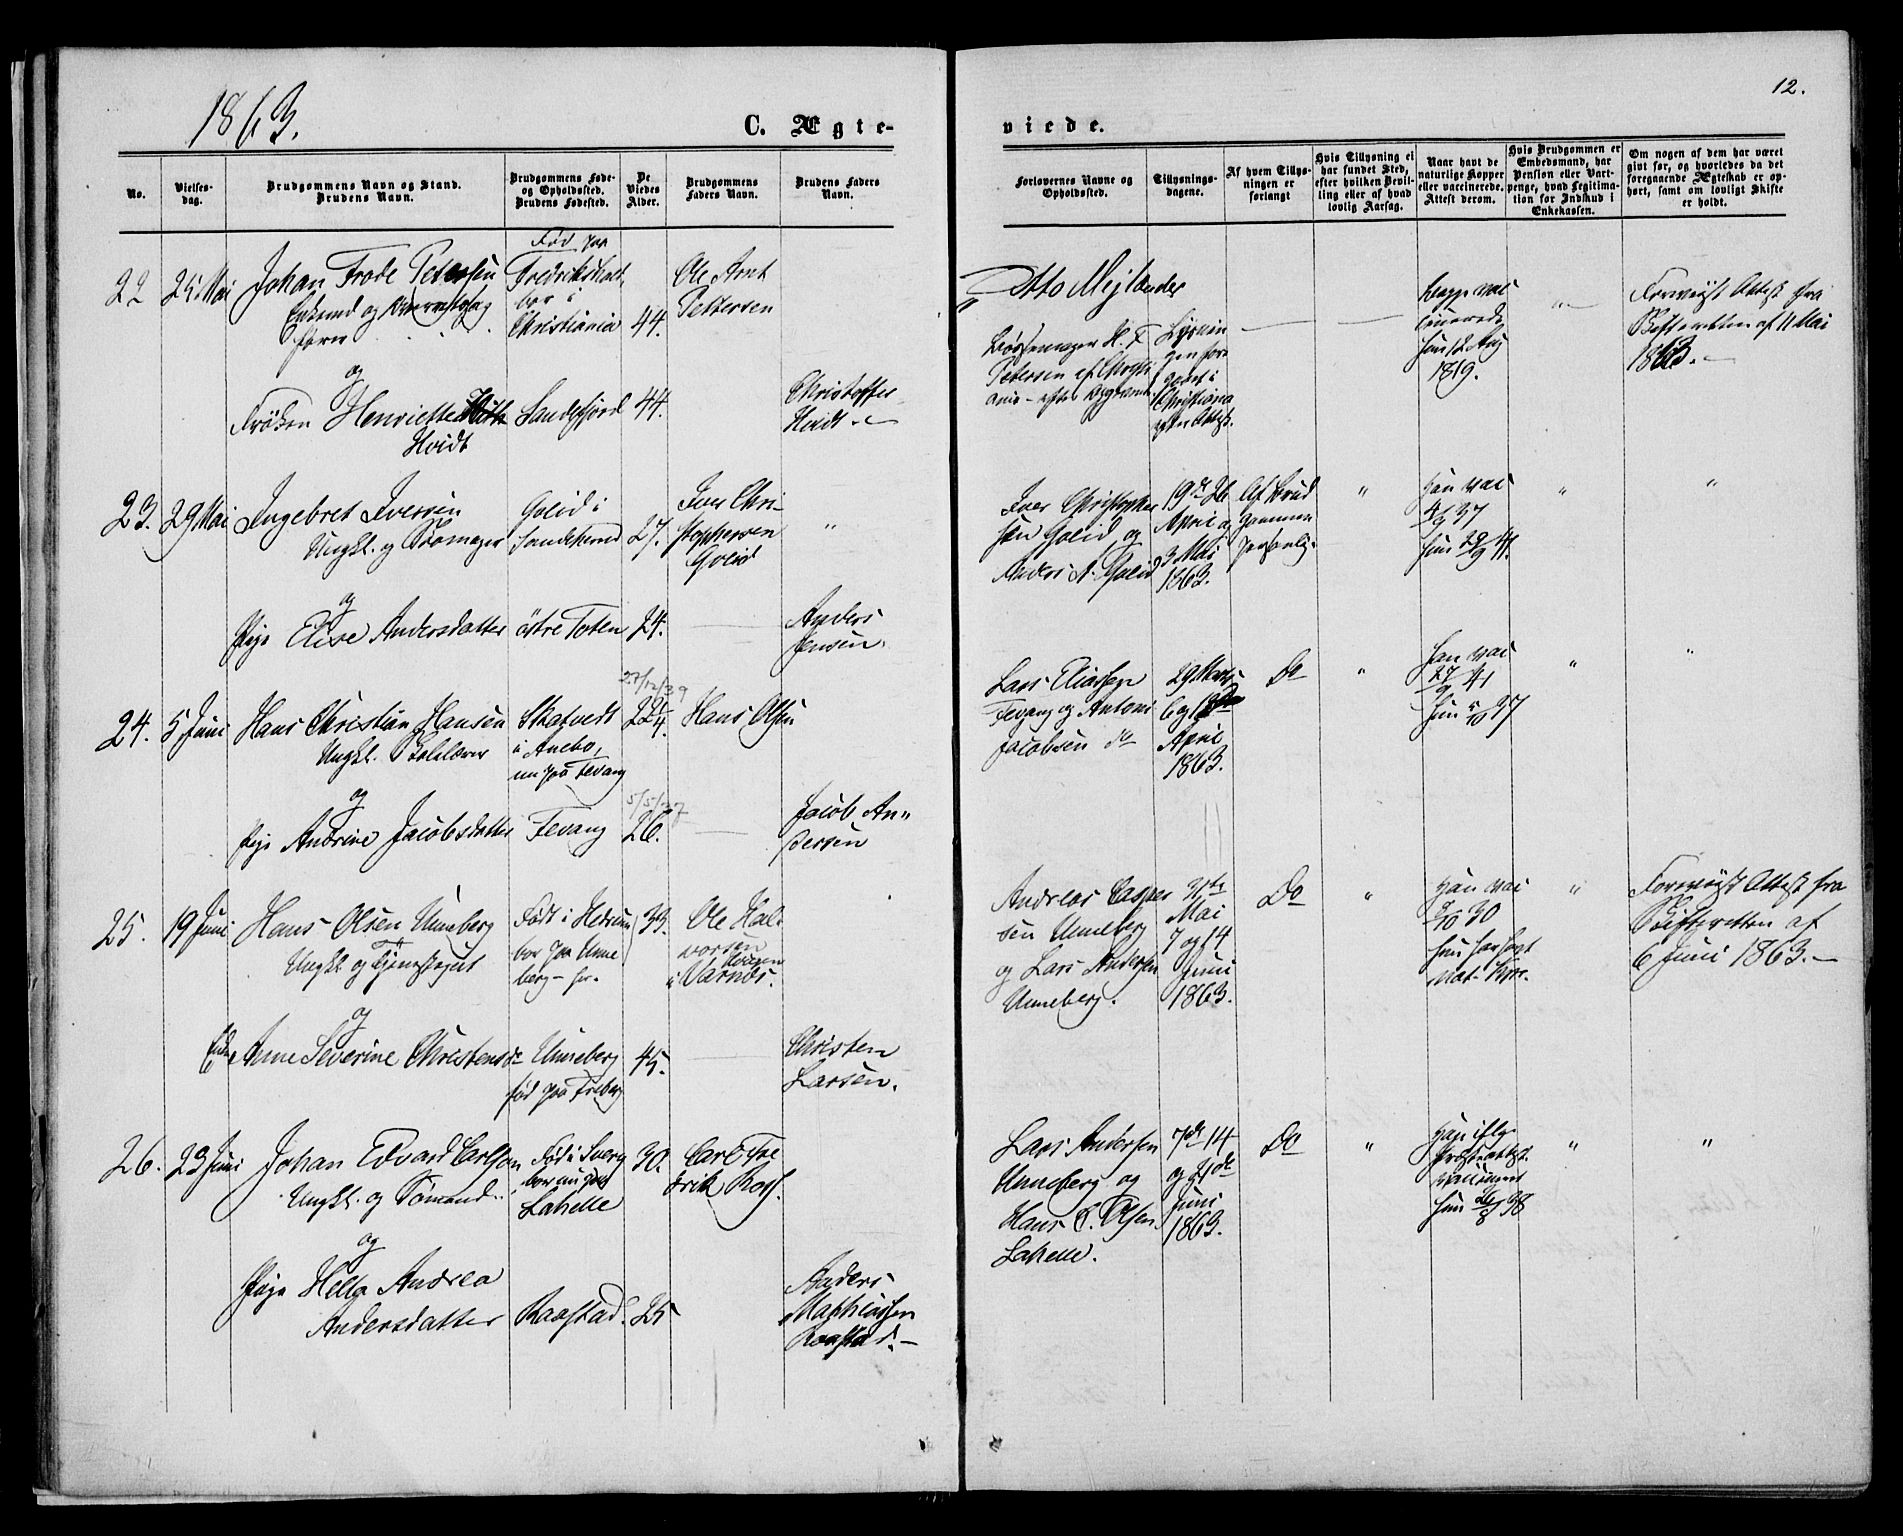 1863.
12.
C. Ægte-
viede.
No.
Vielses-
dag.
Brudgommens Navn og Stand.
Brudens Navn.
Brudgommens Føde-
og Opholdssted.
Brudens Fødested.
De
Viedes
Alder.
Brudgommens
Faders Navn.
Brudens Faders
Navn.
Forlovernes Navne og
Opholdssted.
Tillysnings-
dagene.
Af hvem Tillys-
ningen er
forlangt
Hvis Tillysning ei
har fundet Sted,
efter hvilken Bevil-
ling eller af hvad
lovlig Aarsag.
Naar havt de
naturlige Kopper
eller vaccinerede.
Attest derom.
Hvis Brudgommen er
Embedsmand, har
Pension eller Vart-
penge, hvad Legitima-
tion for Indskud i
Enkekassen.
Om nogen af dem har været
givt før, og hvorledes da det
foregaaende Ægteskab er op-
hørt, samt om lovligt Skifte
er holdt.
22
25 Mai
Johan Frode Petersen
Enkemd og
og
Frøken Henriette
Hvidt
Fød paa
Fredrikshald,
bor i
Christiania
Sandefjord
44.
44.
Ole Arnt
Pettersen
Christoffer
Hvidt.
Otto Mejlænder
Petersen af Christi
ania - efter
Lysnin
gen fore
gaaet i
Christiania
efter Attest.
Begge vac
cinerede
hun 12 Aug
1819.
"
Forevist Attest fra
Skifteretten af 11 Mai
1863.
23.
29 Mai
Ingebret Iversen
Ungkl. og Skomager
og
Pige Elise Andersdatter
Golid i
Sandeherred
østre Toten
27.
24.
Iver Chri-
stophersen
Golid
"
Anders
Jensen.
Iver Christopher
sen Golid og
Anders A. Golid
19de 26
April og
3 Mai
1863.
Af Brud
gommen
personlig.
"
Han vac
4/9 37
hun 29/9 41.
"
"
24.
5 Juni
Hans Christian Hansen
Ungkl.
og
Pige Andrine Jacobsdatter
Skatvedt
i Anebo,
nu paa Fevang
Fevang
27/12/39
24.
5/5/37
26.
Hans Olsen
Jacob An"
dersen
Lars Eliassen
Fevang og Anton
Jacobsen do
29 Marts
6 og 12
April
1863.
Do
"
Han vac
27/9 41
hun 5/10 37
"
"
25.
19 Juni
Hans Olsen Unneberg
Ungkl og Tjenestegut
og
Enke Anne Severine Christensdr
Født i Hedrum
bor paa Unne
berg - her.
Unneberg
fød paa Freberg
33.
45.
Ole Hal-
vorsen
Haugen
i Varnes.
Christen
Larsen.
Andreas Casper
sen Unneberg
og Lars Andersen
Unneberg.
31te
Mai
7 og 14
Juni
1863.
Do
"
Han vac
9/10 30
hun har havt
nat. Kopr.
"
Forevist Attest fra
Skifteretten af
6 Juni 1863.
26.
23 Juni
Johan Edvard Carlson
Ungkl. og Sømand.
og
Pige Helle Andrea
Andersdatter
Fød i Sverig
bor nu paa
Lahelle
Raastad.
30.
25
Carl Fre
drik Ross.
Anders
Mathiassen
Raastad.
Lars Andersen
Unneberg og
Hans C. Olsen
Lahelle.
7de 14
og 21de
Juni
1863.
Do
"
Han iflg
Præsteattest
vaccineret
hun 26/8 38
"
"